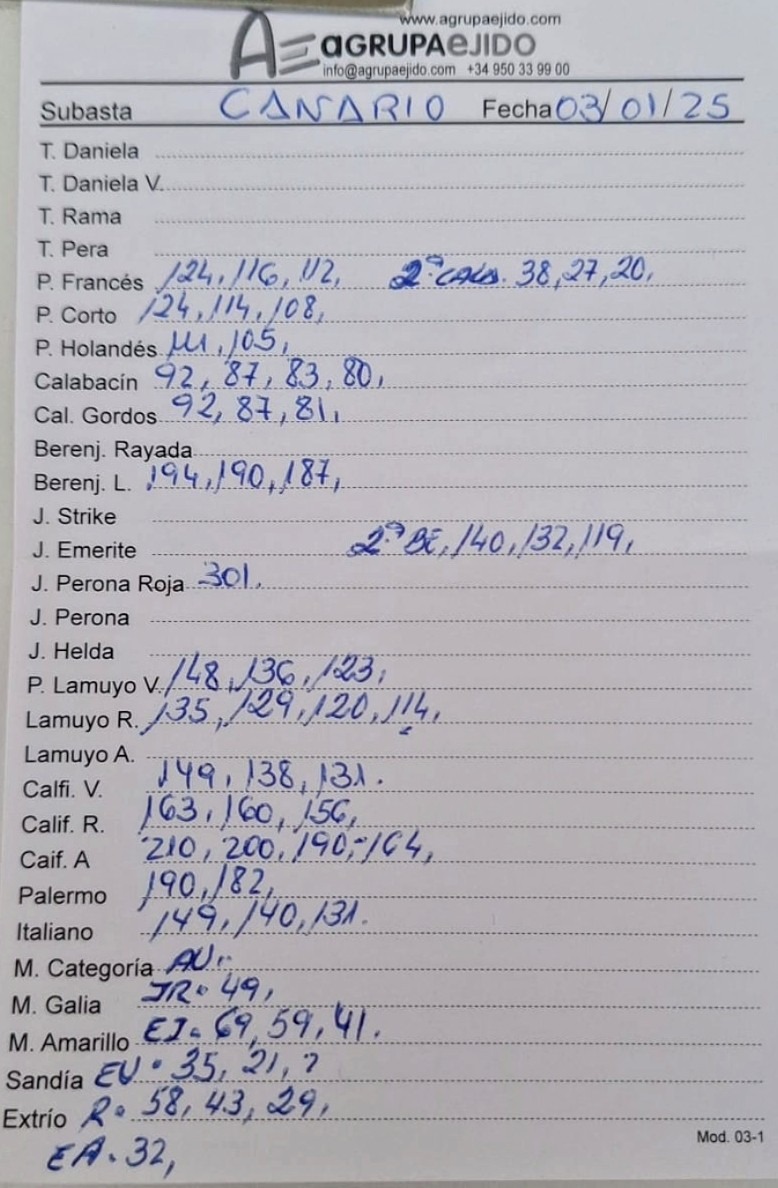 www.agrupaejido.com
AE aGRUPAeJIDO
info@agrupaejido.com +34 950 33 99 00
Subasta CANARIO Fecha 03/01/25
T. Daniela
T. Daniela V.
T. Rama
T. Pera
P. Francés 124, 116, 112, 2ª CALB. 38, 27, 20,
P. Corto 124, 114, 108,
P. Holandés 111, 105,
Calabacín 92, 87, 83, 80,
Cal. Gordos 92, 87, 81,
Berenj. Rayada
Berenj. L. 194, 190, 187,
J. Strike
J. Emerite 2ª BE, 140, 132, 119,
J. Perona Roja 301.
J. Perona
J. Helda
P. Lamuyo V. 148, 136, 123,
Lamuyo R. 135, 129, 120, 114,
Lamuyo A.
Calfi. V. 149, 138, 131.
Calif. R. 163, 160, 156,
Caif. A 210, 200, 190,-164,
Palermo 190, 182,
Italiano 149, 140, 131.
M. Categoría AU.
M. Galia JR. 49,
M. Amarillo EJ. 69, 59, 41.
Sandía EV. 35, 21, ?
Extrío R. 58, 43, 29,
EA. 32,
Mod. 03-1